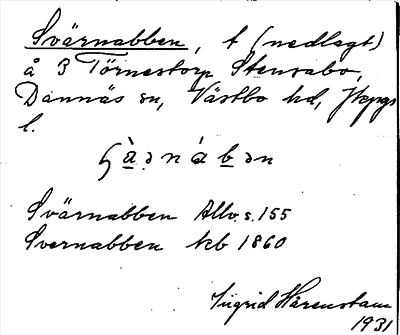 Svärnabben, t (nedlagt)
å 3 Törnestorp Stensabo,
Dannäs sn, Västbo hd, Jkpgs
l.
Svärnabben Allv. s. 155
Svernabben kb 1860
Ingrid Hårenstam
1931